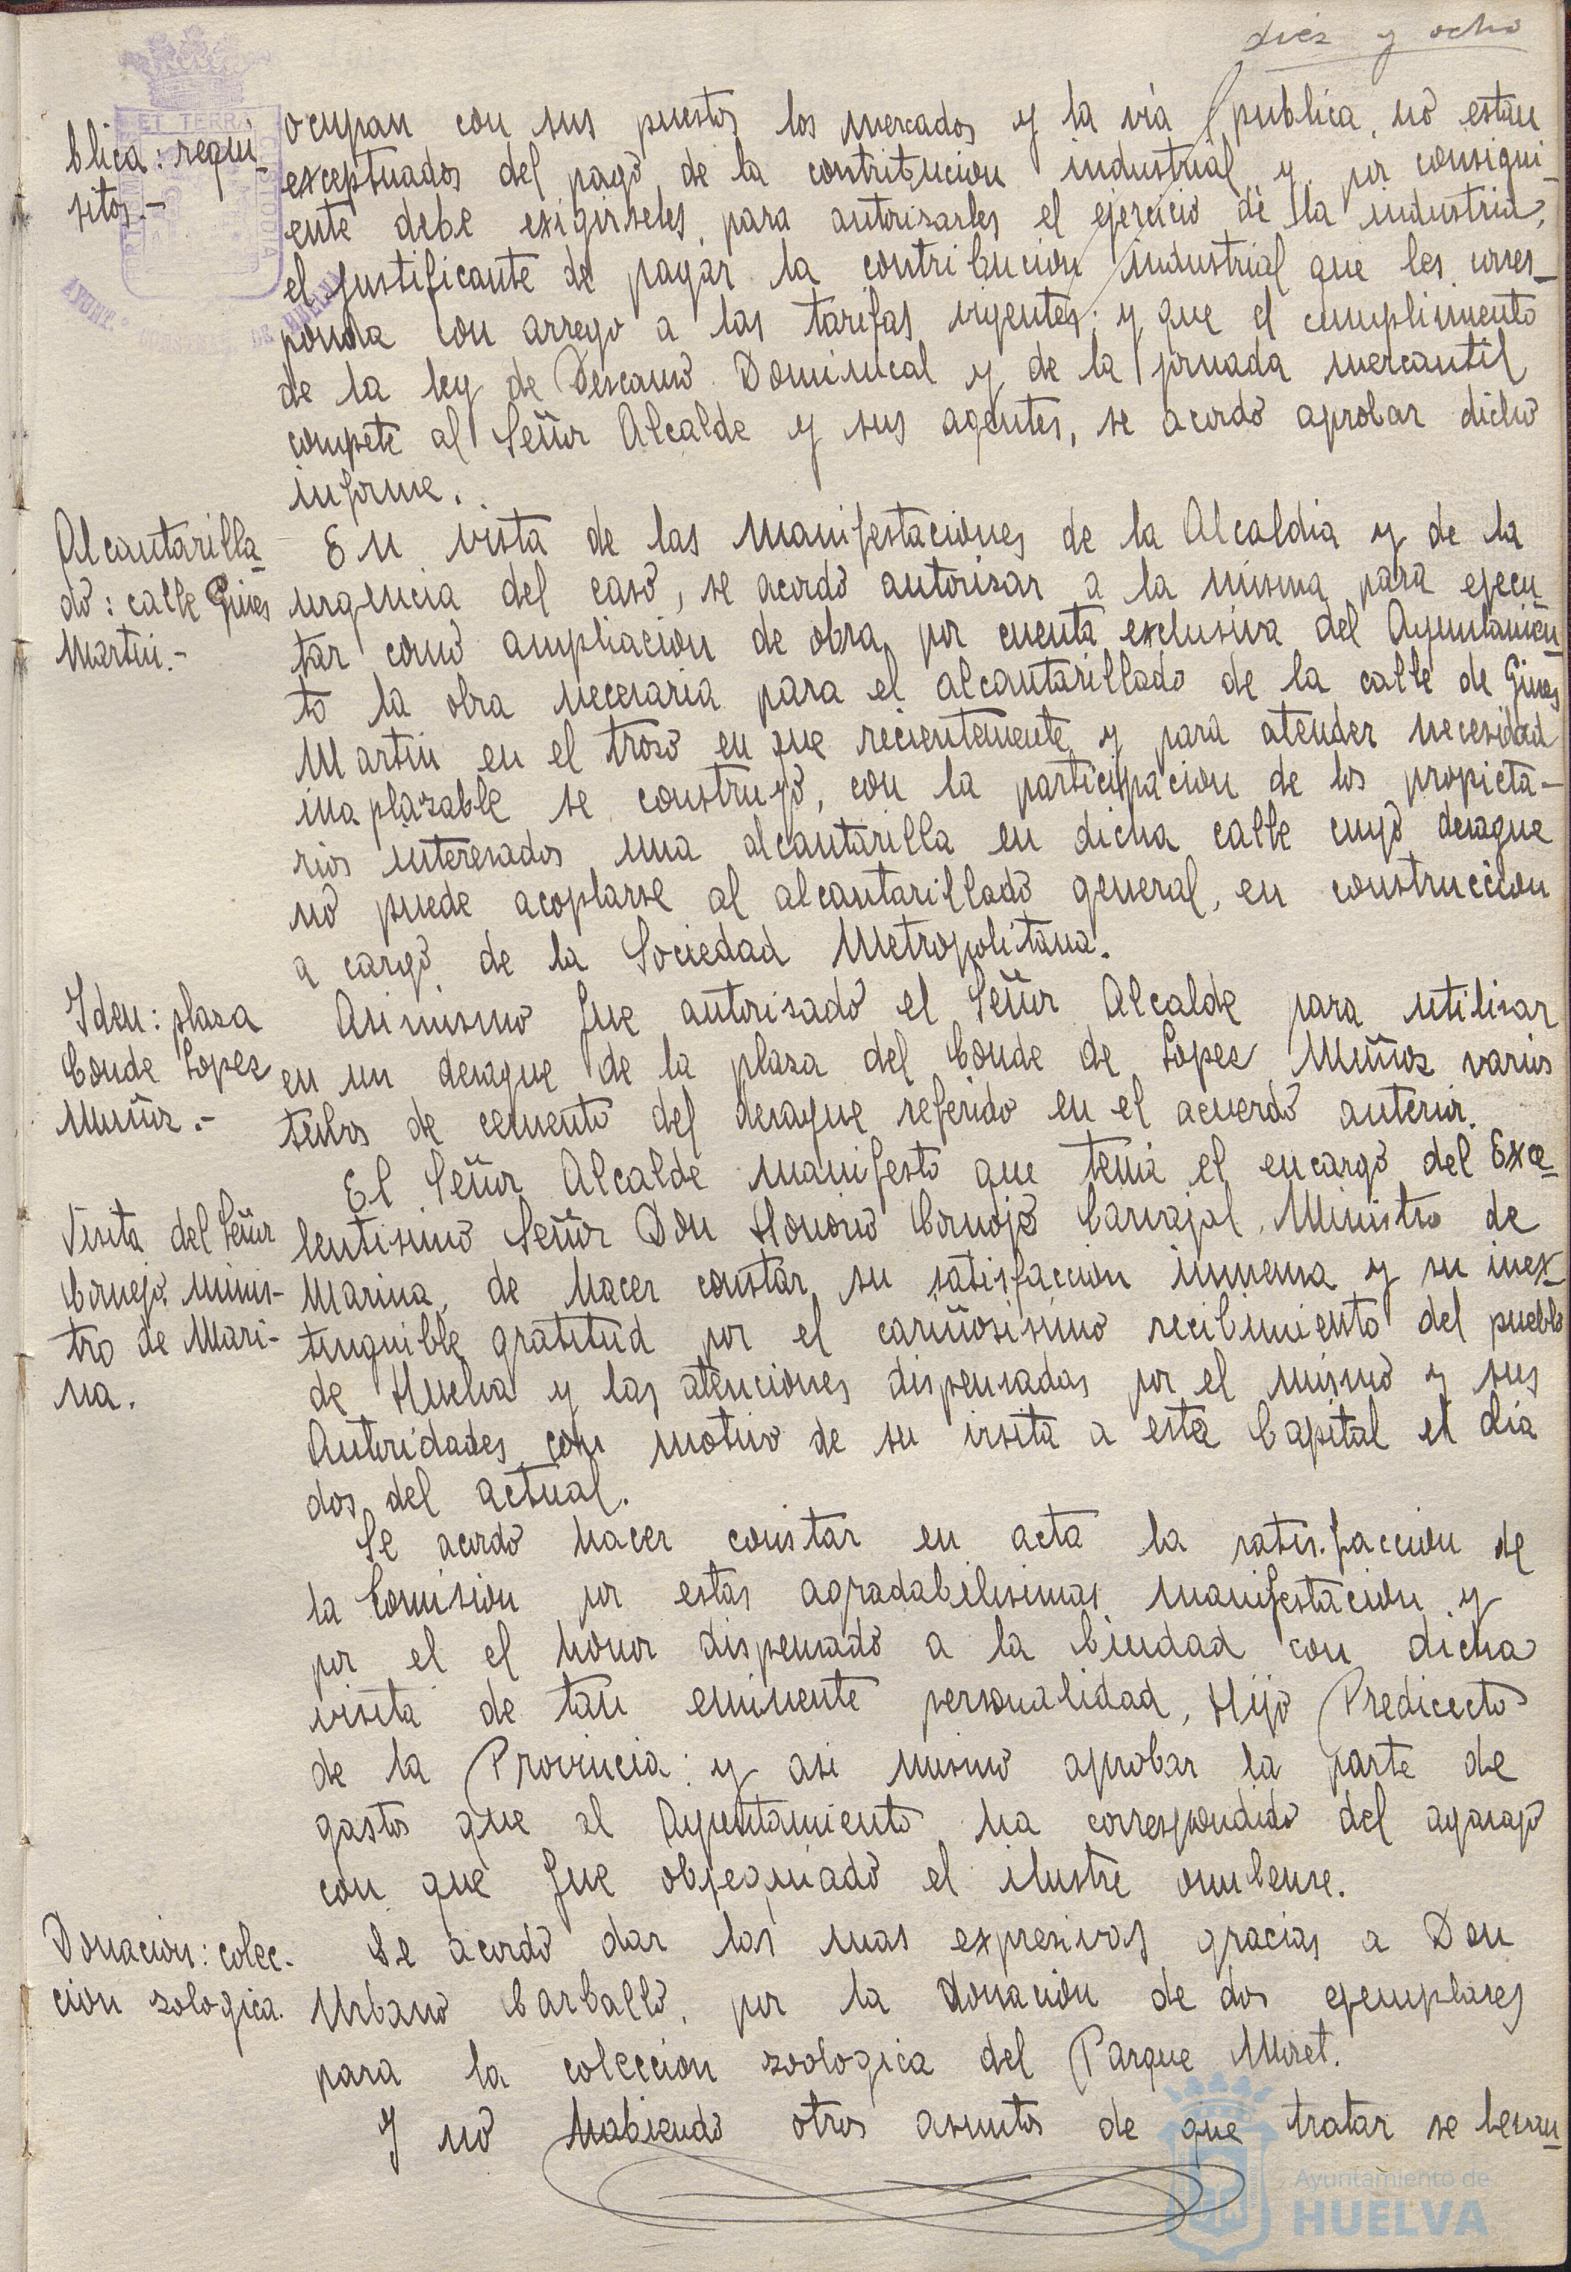 diez y ocho
blica: requi-
sitos.-
ocupan con sus puestos los mercados y la via publica, no estan
exceptuados del pago de la contribucion industrial y por consigui-
ente debe exigirseles, para autorizarles el ejercicio de la industria,
el justificante de pagar la contribucion industrial que les corres-
ponda con arrego a las tarifas vigentes; y que el cumplimiento
de la ley de Descanso Dominical y de la jornada mercantil
compete al Señor Alcalde y sus agentes, se acordó aprobar dicho
informe.
Alcantarilla-
do: calle Gines
Martin.-
En vista de las manifestaciones de la Alcaldia y de la
urgencia del caso, se acordó autorizar a la misma para ejecu
tar como ampliacion de obra por cuenta exclusiva del Ayuntamien-
to la obra necesaria para el alcantarillado de la calle de Gines
Martin en el trozo en que recientemente y para atender necesidad
inaplazable se construyó, con la participacion de los propieta-
rios interesados una alcantarilla en dicha calle cuyo desague
no puede acoplarse al alcantarillado general, en construccion
a cargo de la Sociedad Metropolitana.
Iden: plaza
Conde Lopez
Muñoz.-
Asimismo fue autorizado el Señor Alcalde para utilizar
en un desague de la plaza del Conde de Lopez Muñoz varios
tubos de cemento del desague referido en el acuerdo anterior.
El Señor Alcalde manifestó que tenia el encargo del Exce-
Visita del Señor
Cornejo, Minis-
tro de Mari-
na.
lentisimo Señor Don Honorio Cornejo Carvajal, Ministro de
Marina, de hacer constar su satisfaccion inmensa y su inex-
tinguible gratitud por el cariñosisimo recibimiento del pueblo
de Huelva y las atenciones dispensadas por el mismo y sus
Autoridades con motivo de su visita a esta Capital el dia
dos del actual.
Se acordó hacer constar en acta la satisfaccion de
la Comision por estas agradabilisimas manifestacion y
por el el honor dispensado a la Ciudad con dicha
visita de tan eminente personalidad, Hijo Predicecto
de la Provincia: y asi mismo aprobar la parte de
gastos que al Ayuntamiento ha correspondido del agasajo
con que fue obsequiado el ilustre onubense.
Donacion: colec-
cion zologica.
Se acordó dar las mas expresivas gracias a Don
Urbano Carballo, por la donacion de dos ejemplares
para la coleccion zoologica del Parque Moret.
Y no habiendo otros asuntos de que tratar se levan-
Ayuntamiento de
HUELVA